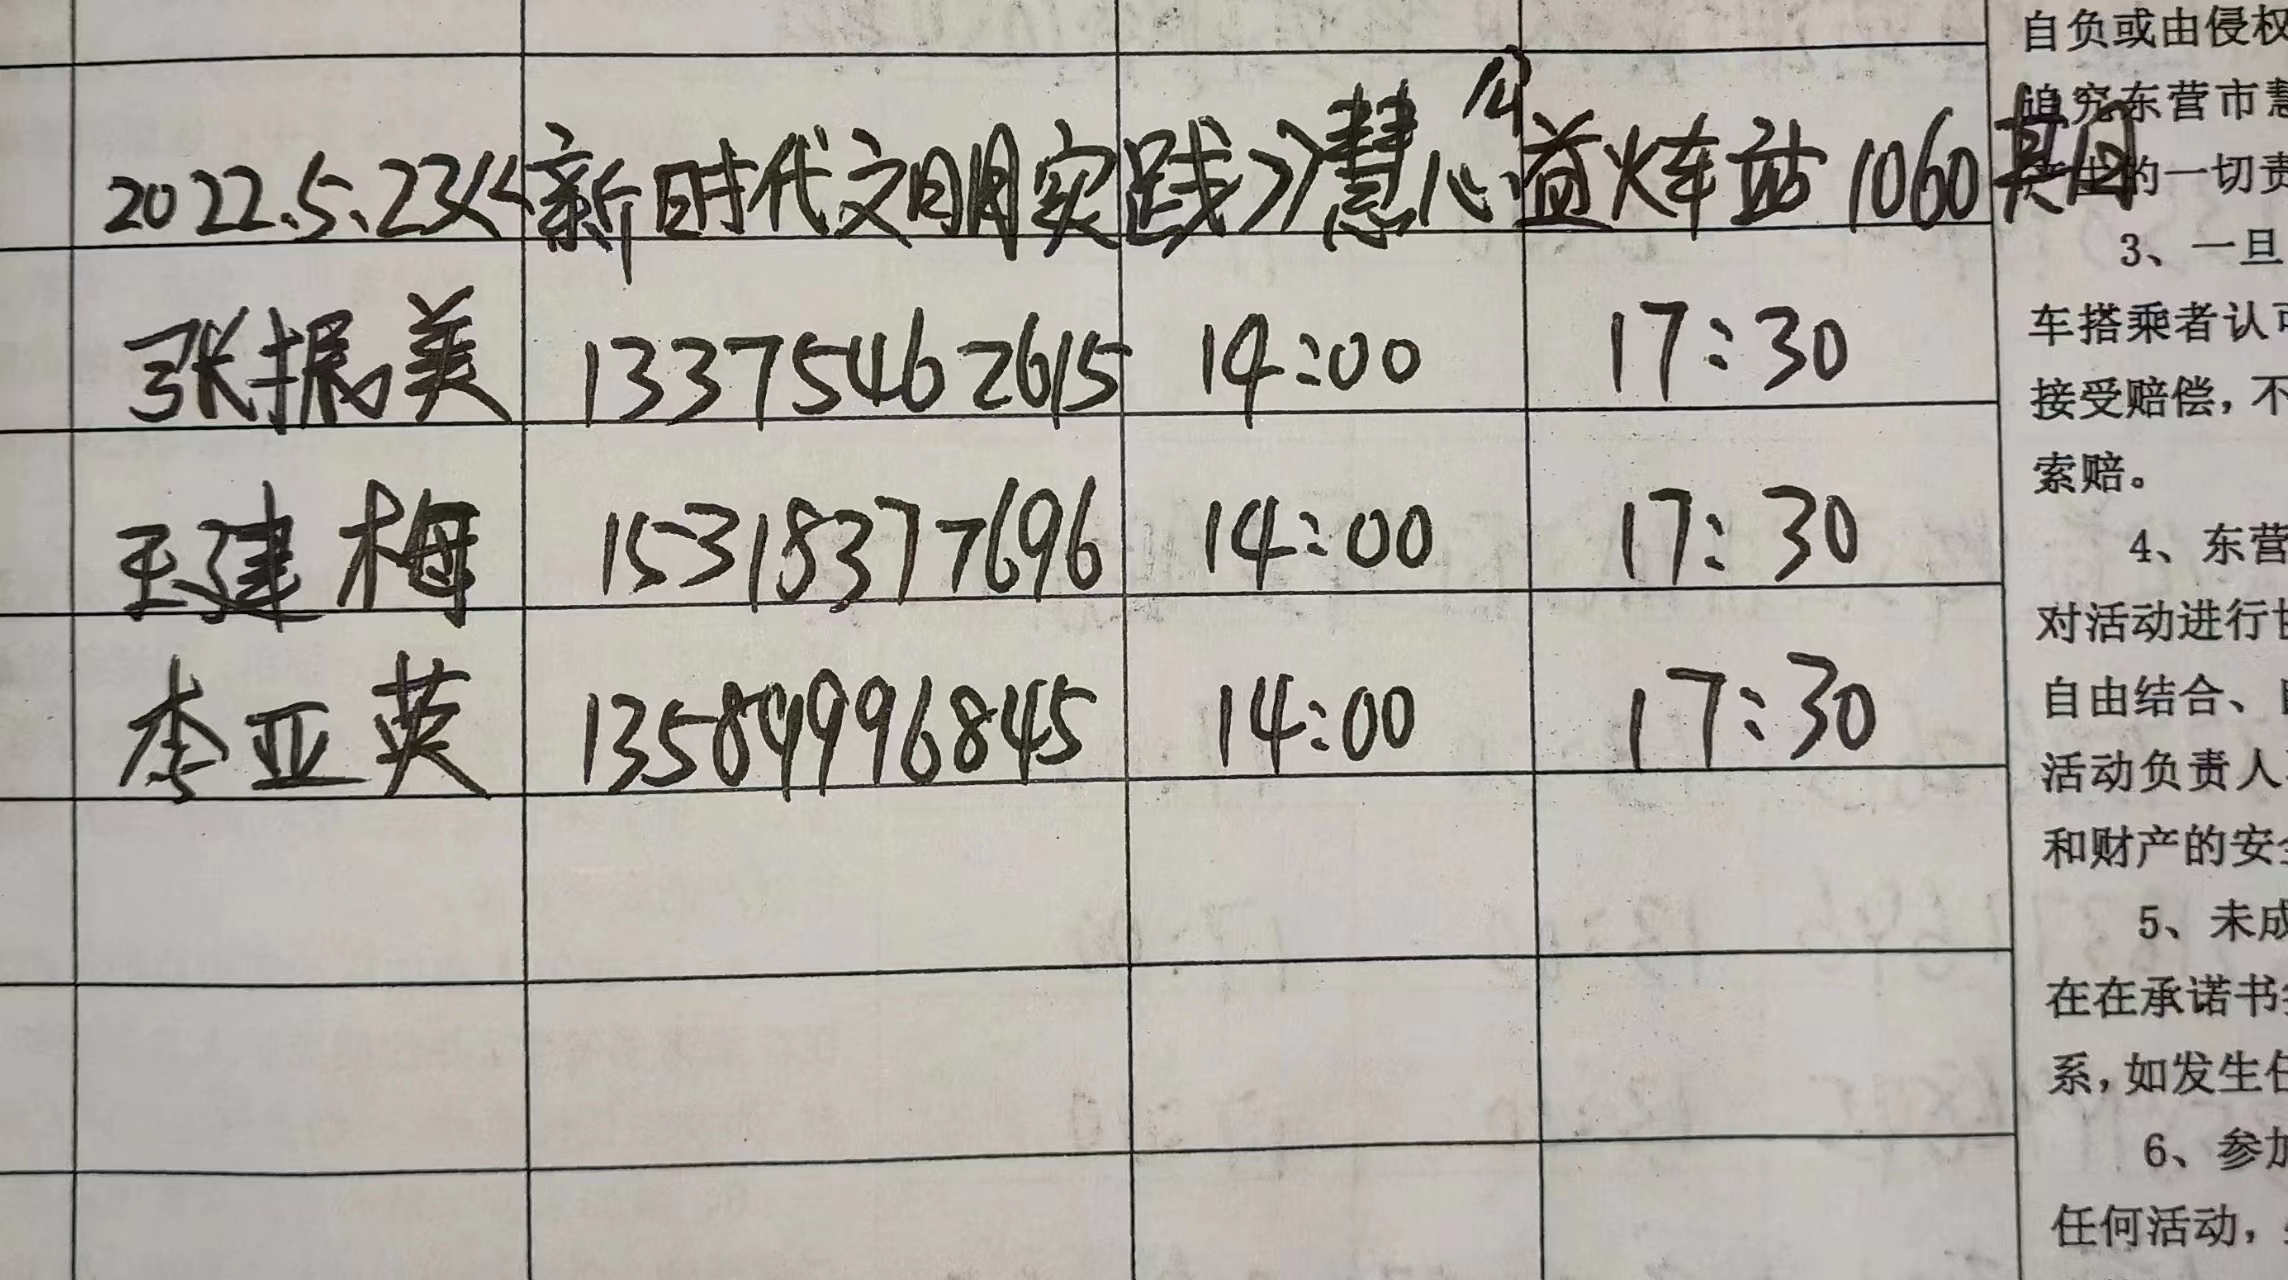 2022.5.23《新时代文明实践》慧心公益火车站1060期
张振美 13375462615 14:00 17:30
王建梅 15318377696 14:00 17:30
李亚英 13589996845 14:00 17:30
自负或由侵权
追究东营市慧
产生的一切责
3、一旦
车搭乘者认可
接受赔偿，不
索赔。
4、东营
对活动进行
自由结合、
活动负责人
和财产的安全
5、未成
在在承诺书
系，如发生任
6、参加
任何活动，